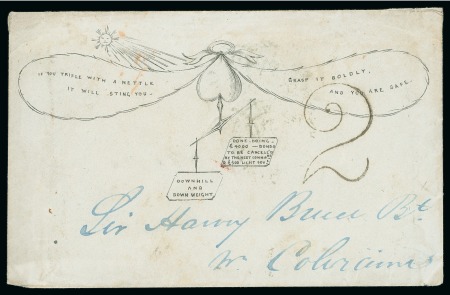 IF YOU TRIFLE WITH A NETTLE
IT WILL STING YOU -
GRASP IT BOLDLY,
AND YOU ARE SAFE.
DONE. DOING.
TO BE CANCELLED
BY THE NEXT
DOWNHILL
AND
DOWN WEIGHT
2
Sir Harvey Bruce Bt